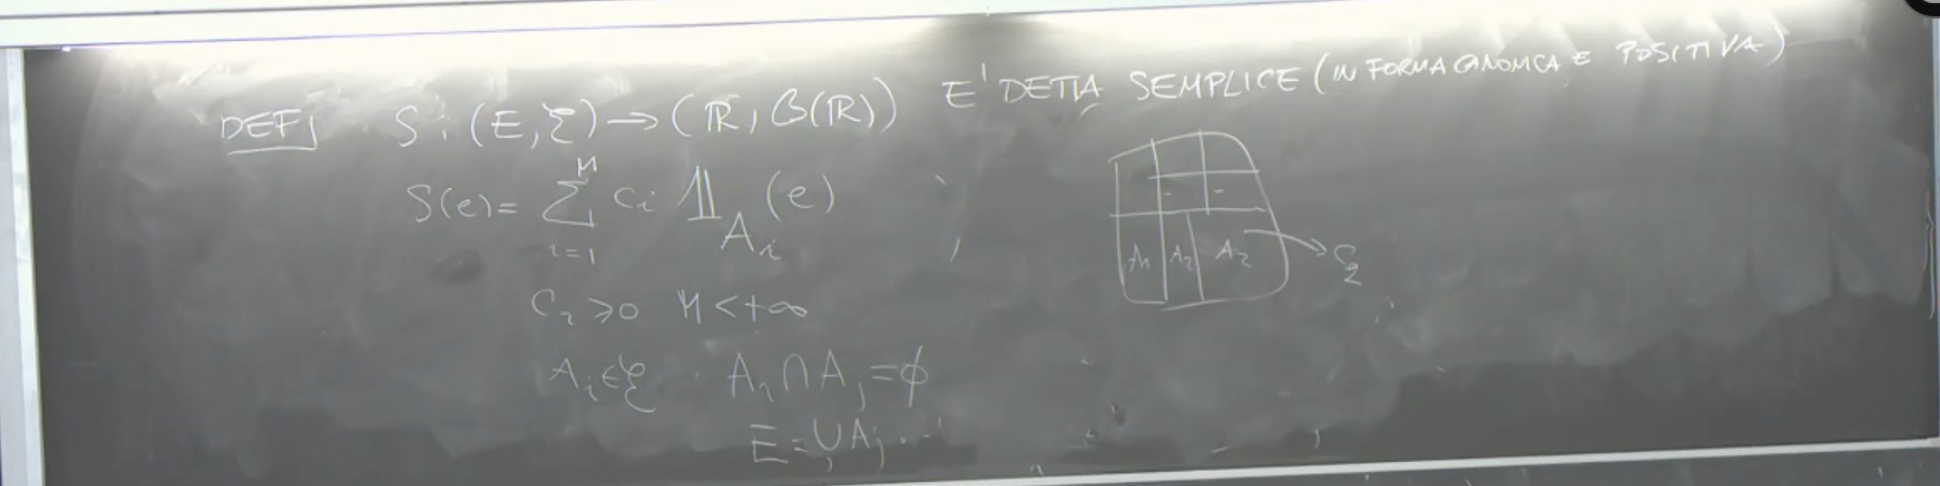 DEF S : (E, ℰ) → (ℝ, B(ℝ)) E' DETTA SEMPLICE (IN FORMA CANONICA E POSITIVA)
S(e) = ∑_{i=1}^{M} c_i 𝟙_{A_i}(e)
C_i ≥ 0 M < +∞
A_i ∈ ℰ A_i ∩ A_j = ∅
E = ∪_j A_j ...
A_1 A_2 A_2 → C_2